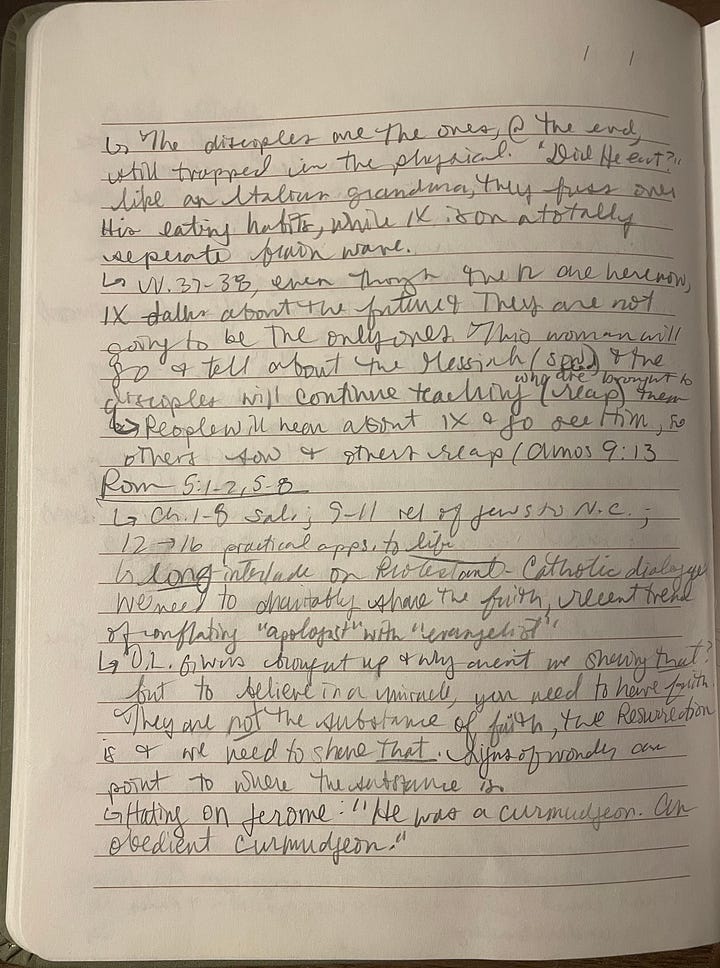 ↳ The disciples are the ones, @ the end,
still trapped in the physical. "Did He eat?"
like an Italian grandma, they fuss over
His eating habits, while IX is on a totally
seperate brain wave.
↳ VV. 37-38, even though the 12 are here now,
IX talks about the future & They are not
going to be the only ones. This woman will
go & tell about the Messiah (sow) & the
disciples will continue teaching (reap) who are brought to them
↳ People will hear about IX & go see Him, so
others sow & others reap (Amos 9:13
Rom 5:1-2, 5-8
↳ Ch. 1-8 sal.; 9-11 rel of Jews to N.C.;
12 → 16 practical apps. to life
↳ long interlude on Protestant-Catholic dialogue
We need to charitably share the faith, recent trend
of conflating "apologist" with "evangelist"
↳ O.L. G was brought up & why aren't we sharing that?
but to believe in a miracle, you need to have faith.
They are not the substance of faith, the Resurrection
is & we need to share that. Signs of wonder can
point to where the substance is.
↳ Hating on Jerome: "He was a curmudgeon. An
obedient curmudgeon."